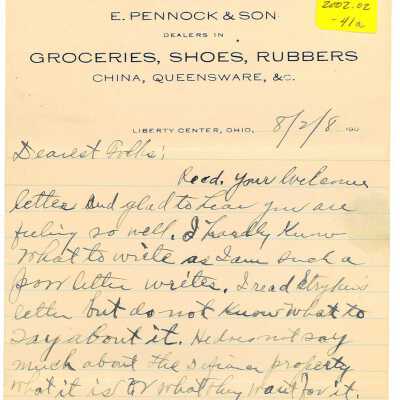 2002.02
-41a
E. PENNOCK & SON
DEALERS IN
GROCERIES, SHOES, RUBBERS
CHINA, QUEENSWARE, &C.
LIBERTY CENTER, OHIO, 8/2/8 190
Dearest Folks:
Recd. Your Welcome
letter and glad to hear you are
feeling so well. I hardly know
what to write as I am such a
poor letter writer. I read Stryker's
letter but do not know what to
say about it. He does not say
much about the Defiance property
what it is or what they want for it.